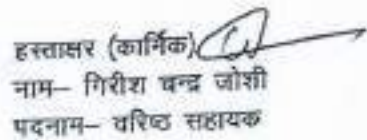 हस्ताक्षर (कार्मिक)
नाम– गिरीश चन्द्र जोशी
पदनाम– वरिष्ठ सहायक